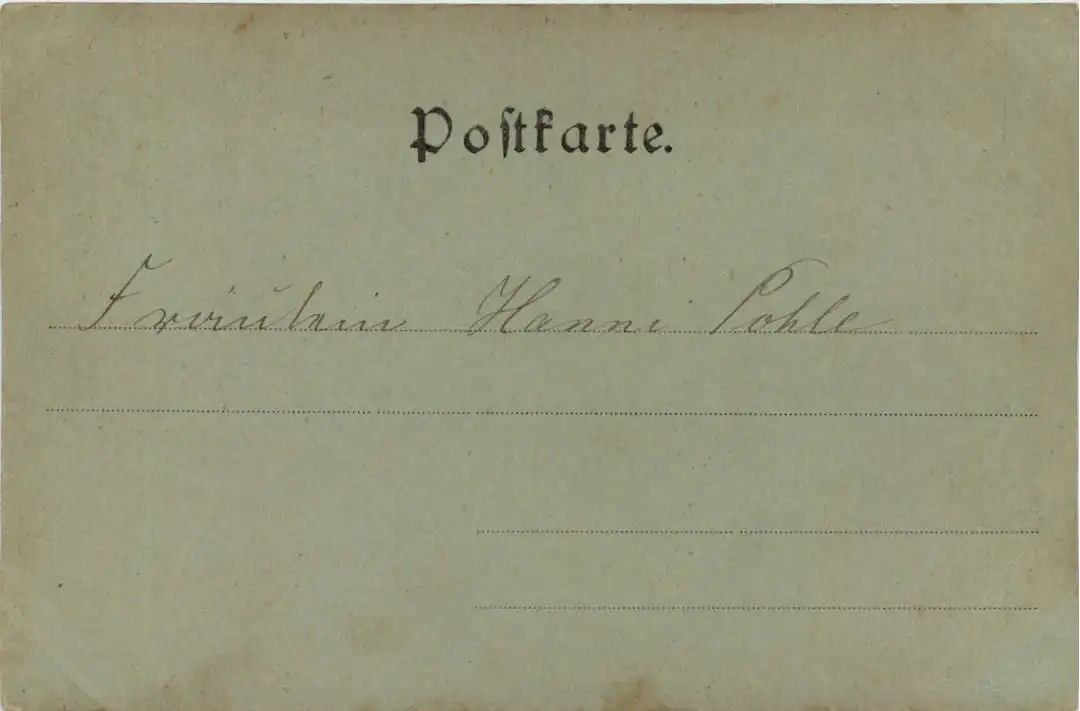 Postkarte.
Fräulein Hanni Pohle